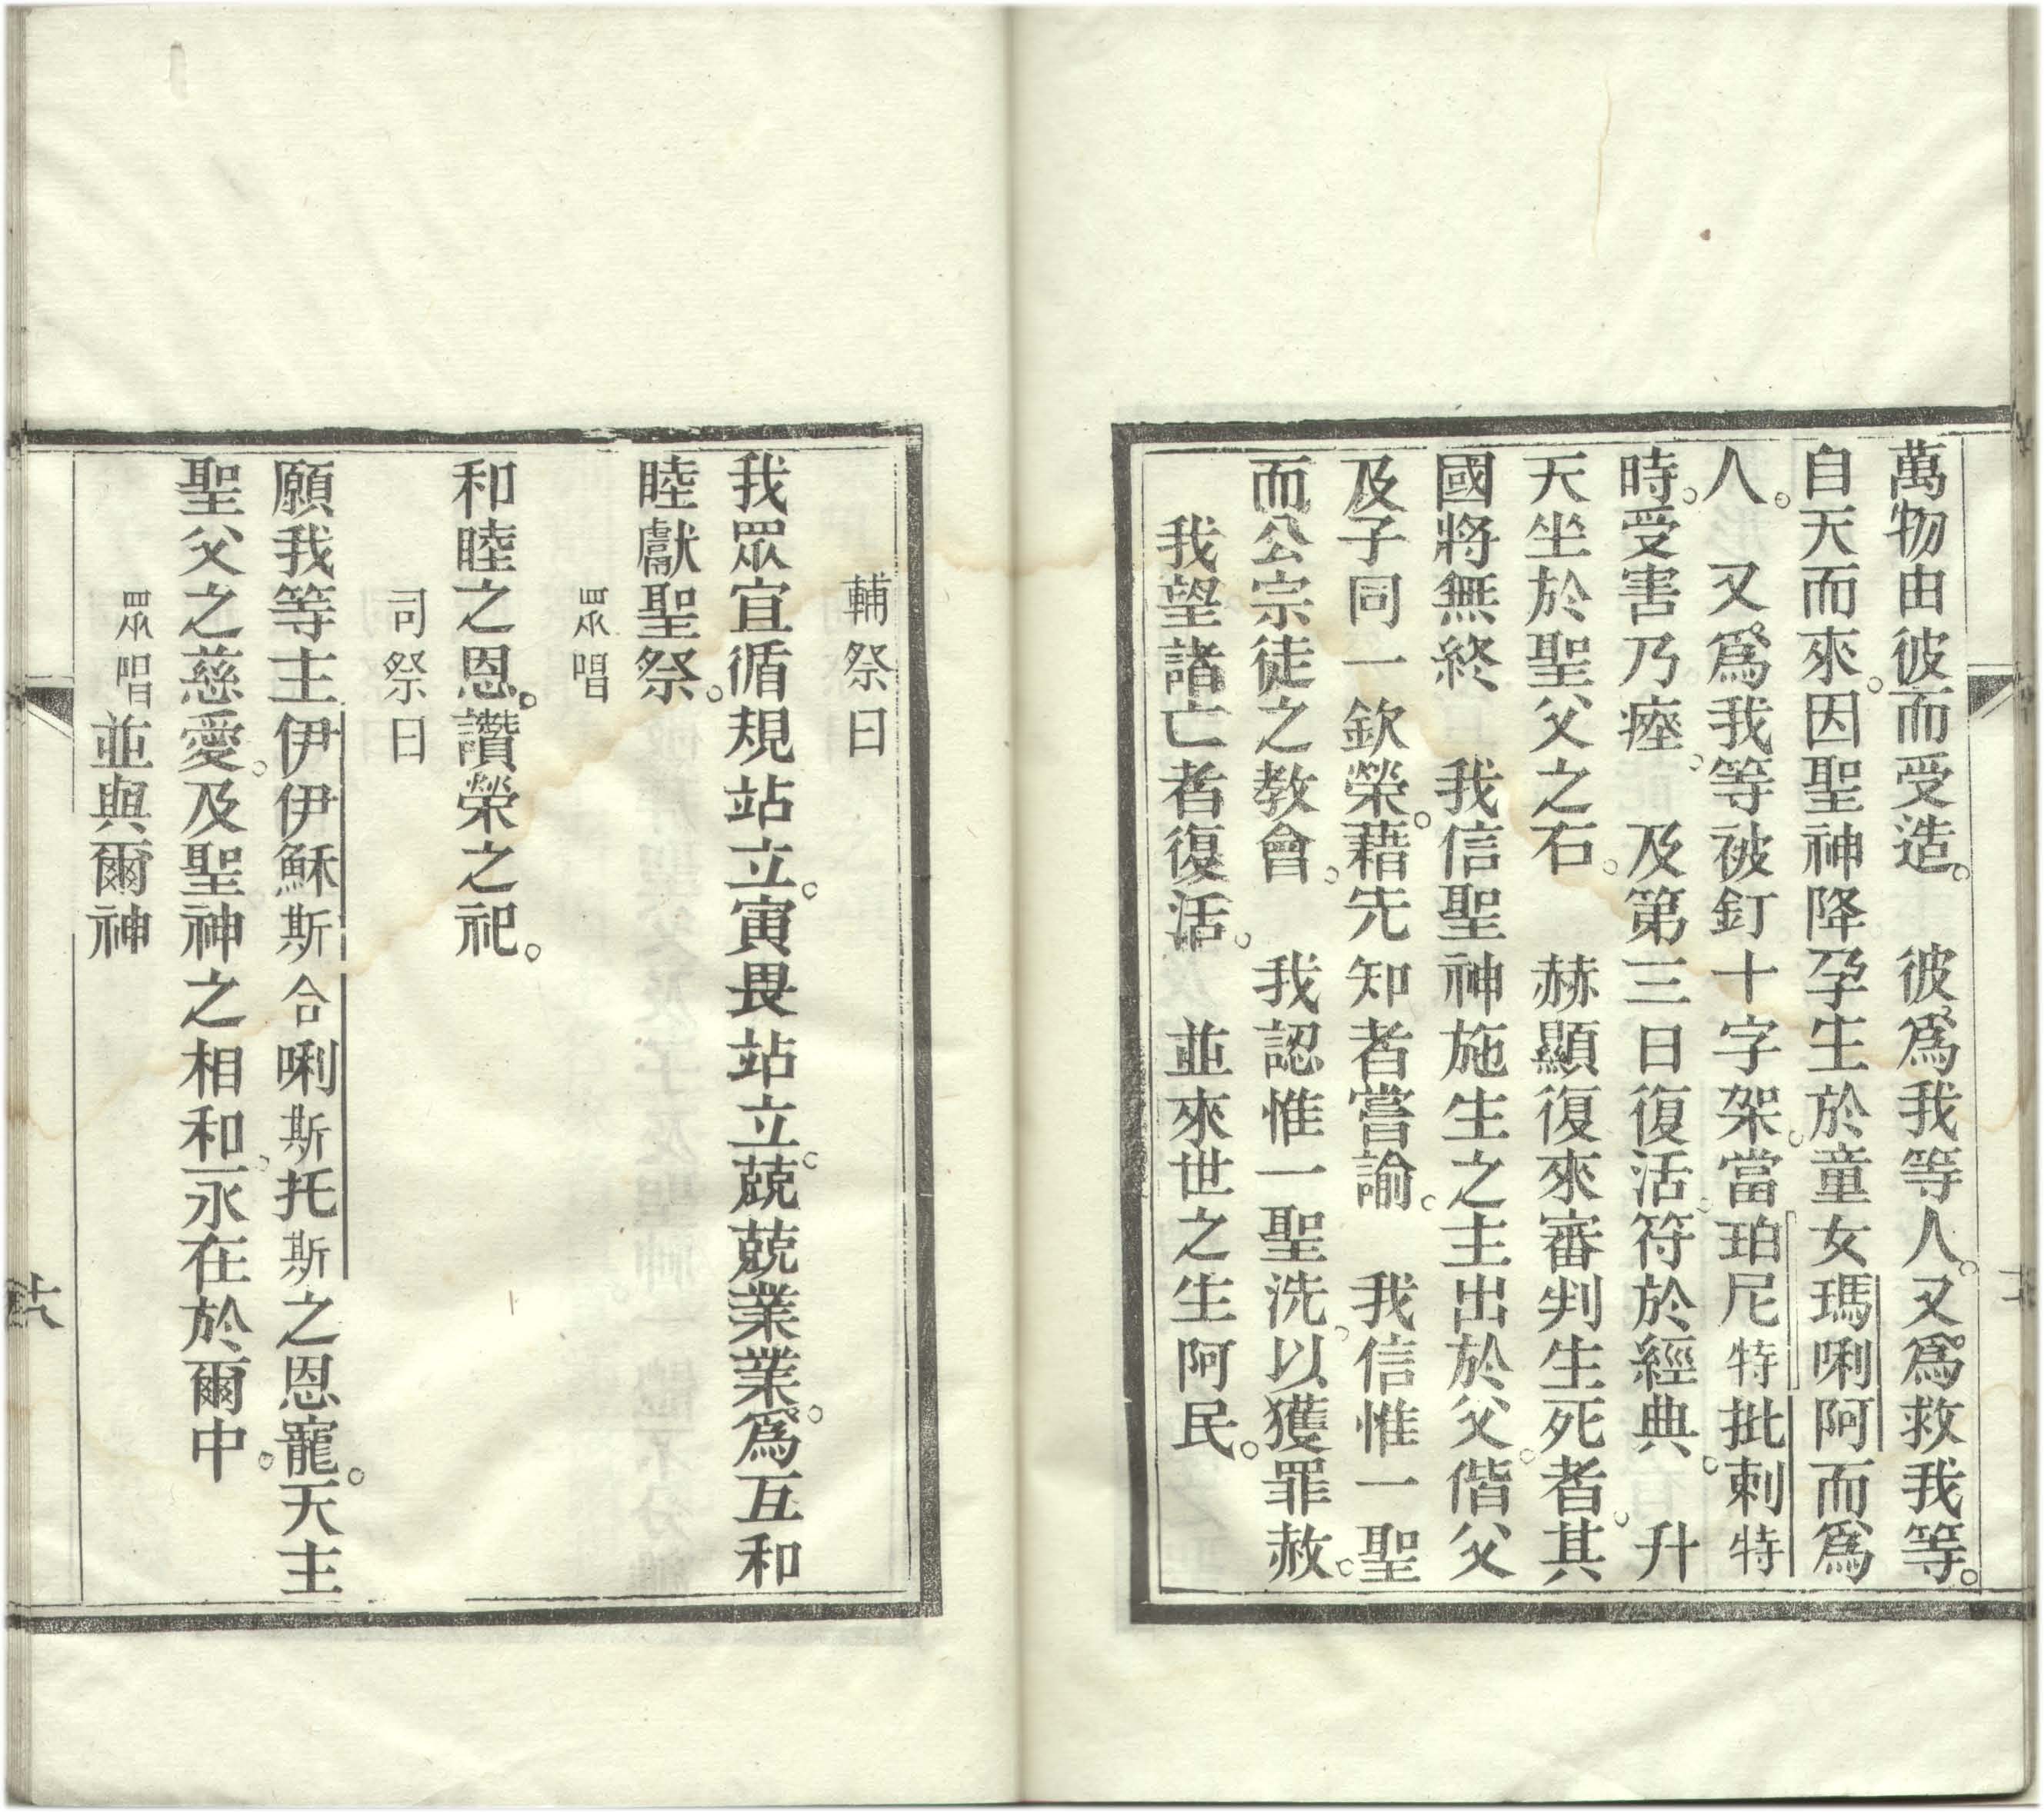 萬物由彼而受造。　彼爲我等人。又爲救我等。
自天而來。因聖神降孕生於童女瑪唎阿而爲
人。　又爲我等被釘十字架。當珀尼特批剌特
時。受害乃瘞。　及第三日復活。符於經典。　升
天坐於聖父之右。　赫顯復來審判生死者。其
國將無終　我信聖神施生之主出於父。偕父
及子同一欽榮。藉先知者嘗諭。　我信惟一聖
而公宗徒之教會。　我認惟一聖洗。以獲罪赦。
我望諸亡者復活。　並來世之生阿民。
輔祭曰
我眾宜循規站立。寅畏站立。兢兢業業。爲互和
睦獻聖祭。
眾唱
和睦之恩。讚榮之祀。
司祭曰
願我等主伊伊穌斯合唎斯托斯之恩寵。天主
聖父之慈愛。及聖神之相和。永在於爾中。
眾唱並與爾神